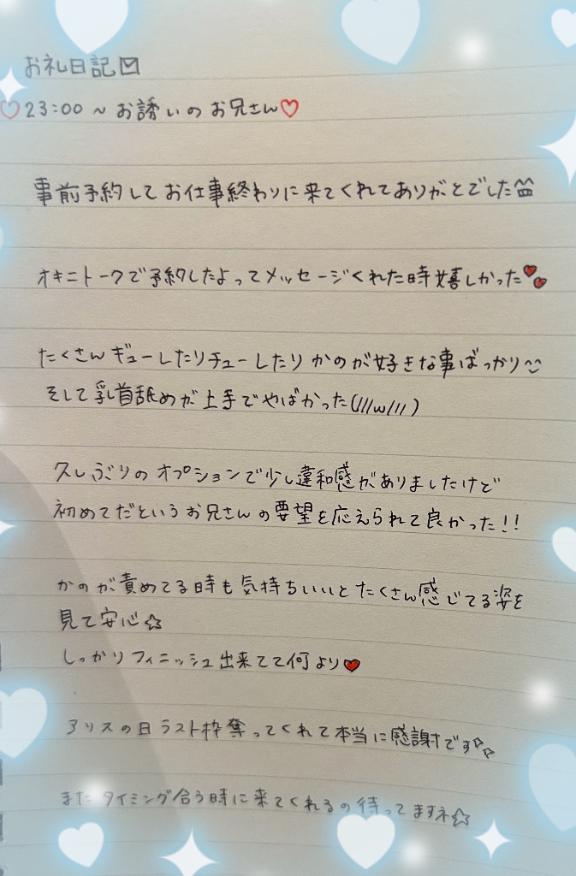 お礼日記✉
♡23:00～お誘いのお兄さん♡
事前予約してお仕事終わりに来てくれてありがとでした
オキニトークで予約したよってメッセージくれた時嬉しかった
たくさんギューしたりチューしたりかのが好きな事ばっかり
そして乳首舐めが上手でやばかった(///w///)
久しぶりのオプションで少し違和感がありましたけど
初めてだというお兄さんの要望を応えられて良かった!!
かのが責めてる時も気持ちいいとたくさん感じてる姿を
見て安心☆
しっかりフィニッシュ出来てて何より♥
アリスの日ラスト枠奪ってくれて本当に感謝です
またタイミング合う時に来てくれるの待ってますネ☆